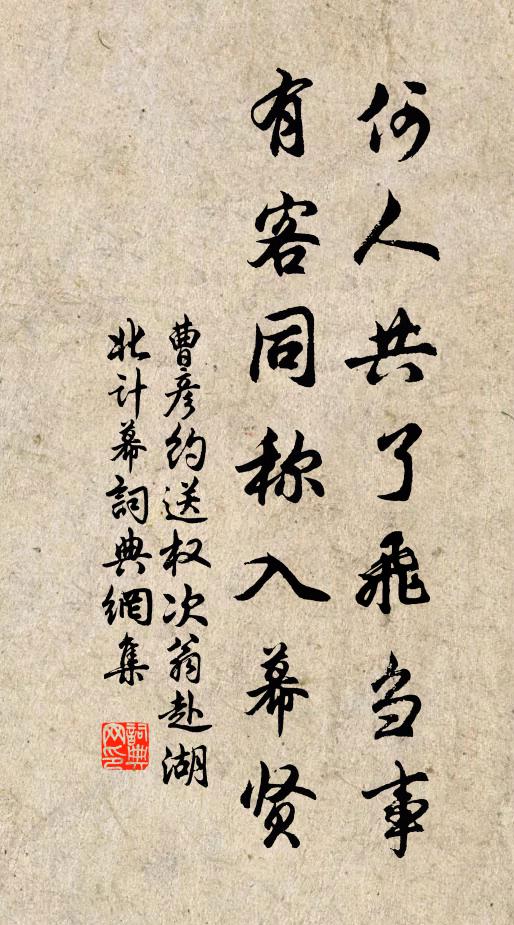 何人共了飛刍事
有客同称入幕贤
曹彦约送权次翁赴湖
北计幕詞典網集
詞典网印